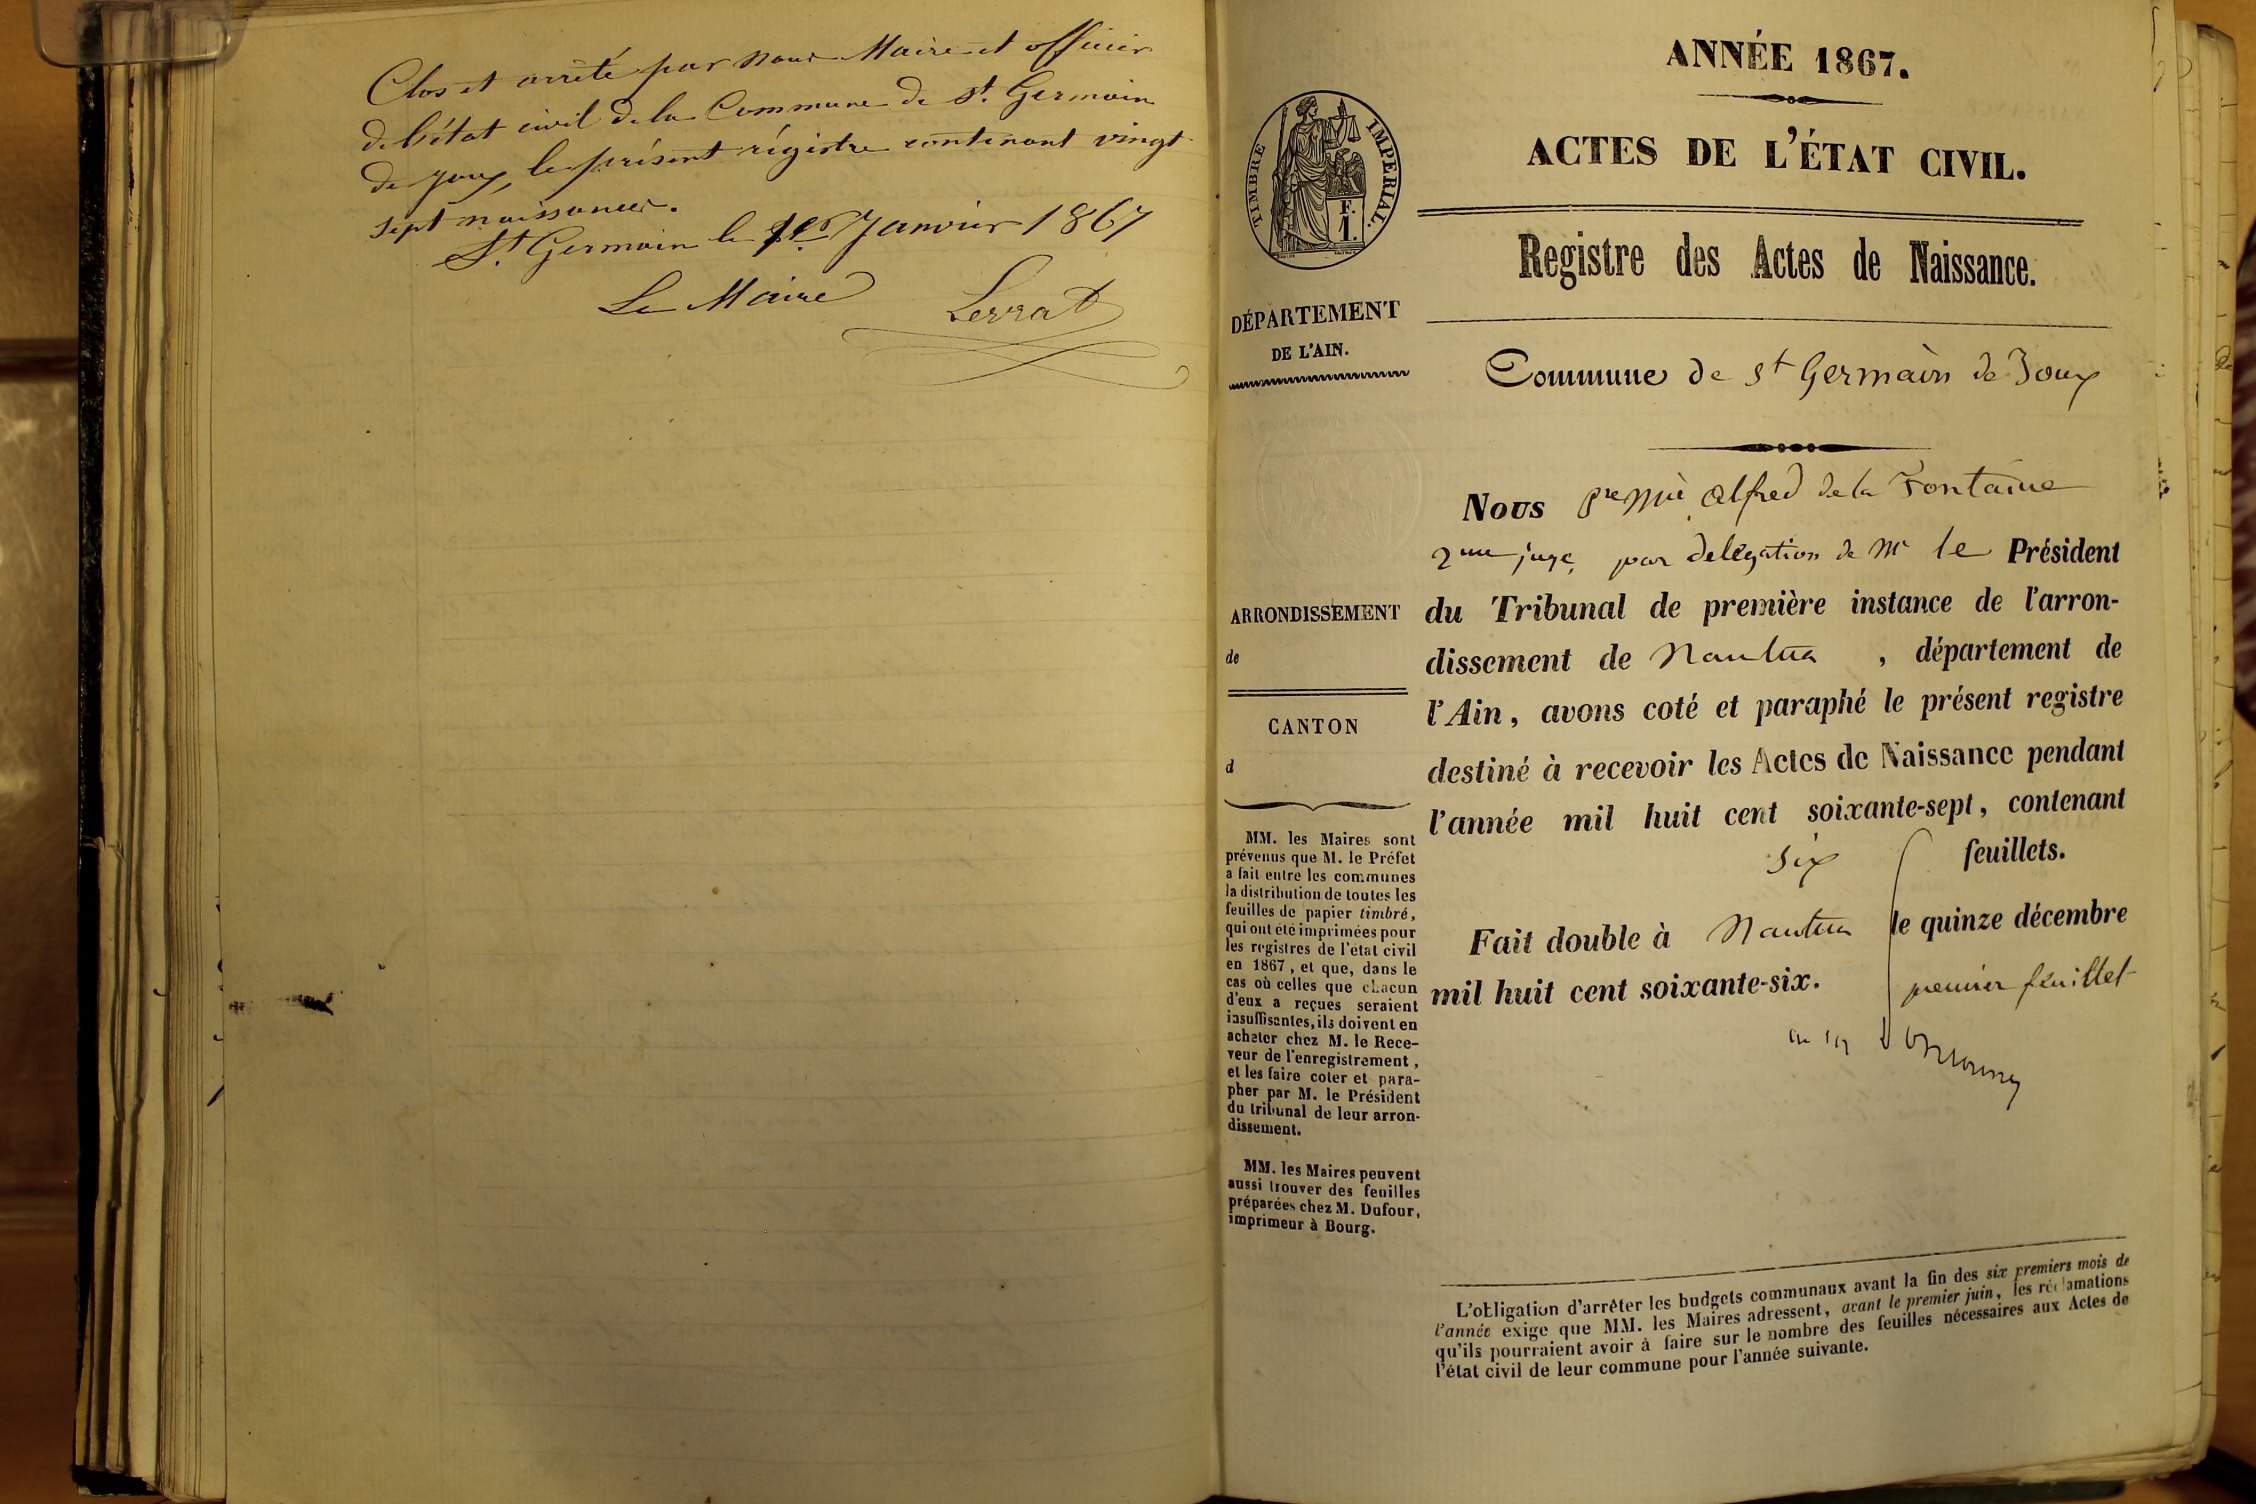 Clos et arrêté par nous Maire et officier
de l'état civil de la Commune de St. Germain
de joux, le présent régistre contenant vingt
sept naissances.
St. Germain le 1er Janvier 1867
Le Maire Serrat
ANNÉE 1867.
ACTES DE L'ÉTAT CIVIL.
TIMBRE IMPERIAL.
F.
1.
Registre des Actes de Naissance.
DÉPARTEMENT
DE L'AIN.
Commune de St Germain de Joux
Nous Alfred de la Fontaine
2me juge, par délégation de Mr le Président
du Tribunal de première instance de l'arron-
dissement de Nantua , département de
l'Ain, avons coté et paraphé le présent registre
destiné à recevoir les Actes de Naissance pendant
l'année mil huit cent soixante-sept, contenant
six feuillets.
Fait double à Nantua le quinze décembre
mil huit cent soixante-six.
premier feuillet
ARRONDISSEMENT
de
CANTON
d
MM. les Maires sont
prévenus que M. le Préfet
a fait entre les communes
la distribution de toutes les
feuilles de papier timbré,
qui ont été imprimées pour
les registres de l'état civil
en 1867, et que, dans le
cas où celles que chacun
d'eux a reçues seraient
insuffisantes, ils doivent en
acheter chez M. le Rece-
veur de l'enregistrement,
et les faire coter et para-
pher par M. le Président
du tribunal de leur arron-
dissement.
MM. les Maires peuvent
aussi trouver des feuilles
préparées chez M. Dufour,
imprimeur à Bourg.
L'obligation d'arrêter les budgets communaux avant la fin des six premiers mois de
l'année exige que MM. les Maires adressent, avant le premier juin, les réclamations
qu'ils pourraient avoir à faire sur le nombre des feuilles nécessaires aux Actes de
l'état civil de leur commune pour l'année suivante.